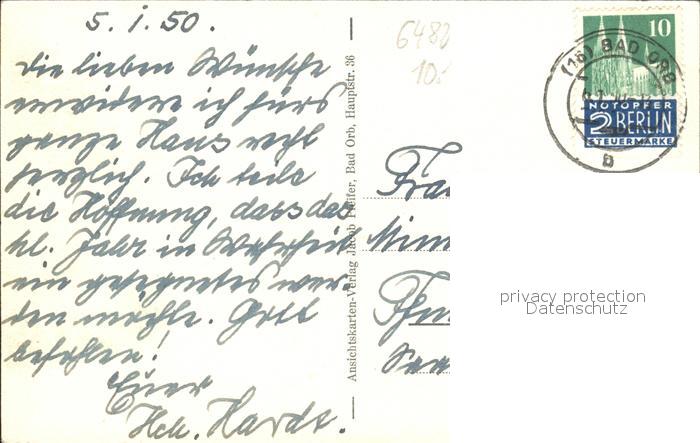 5.1.50.
die lieben Wünsche
erwidere ich fürs
ganze Haus recht
herzlich. Ich teile
die Hoffnung, dass das
hl. Jahr in Wahrheit
ein gesegnetes wer-
den möchte. Gott
befohlen!
Euer
Hch. Hardt.
Ansichtskarten-Verlag Jacob Pfeifer, Bad Orb, Hauptstr. 36
6482
10.-
10
(16) BAD ORB
b
NOTOPFER
2 BERLIN
STEUERMARKE
Frau
privacy protection
Datenschutz